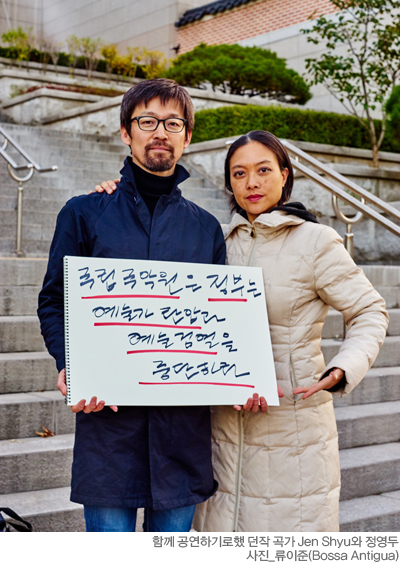 국립국악원은 정부는
예술가 탄압과
예술검열을
중단하라
함께 공연하기로했 던작 곡가 Jen Shyu와 정영두
사진_류이준(Bossa Antigua)